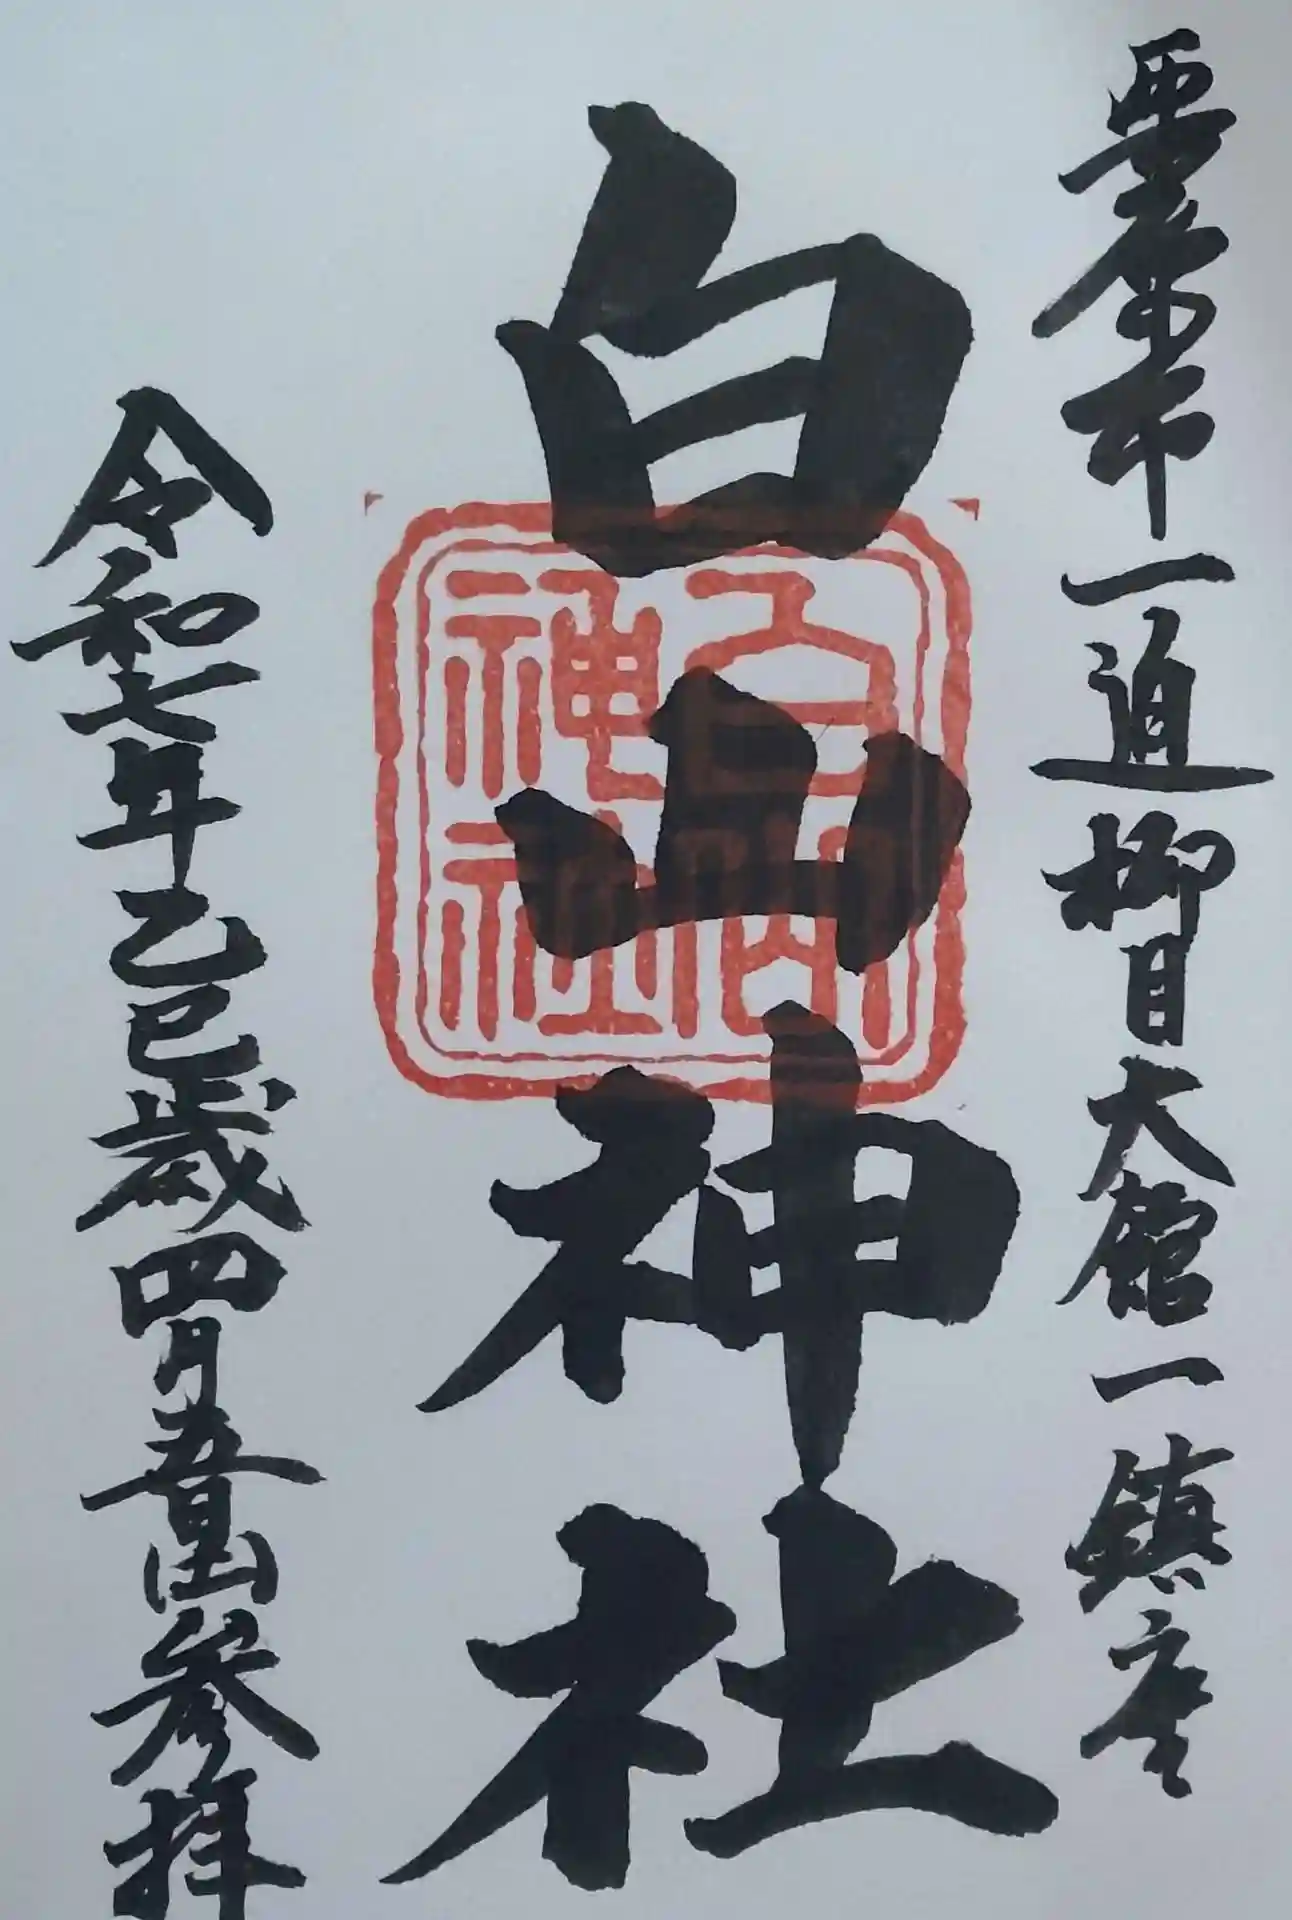 栗原市一迫柳目大館一鎮座
白山神社
白山神社
令和七年乙巳歳四月吉日参拝